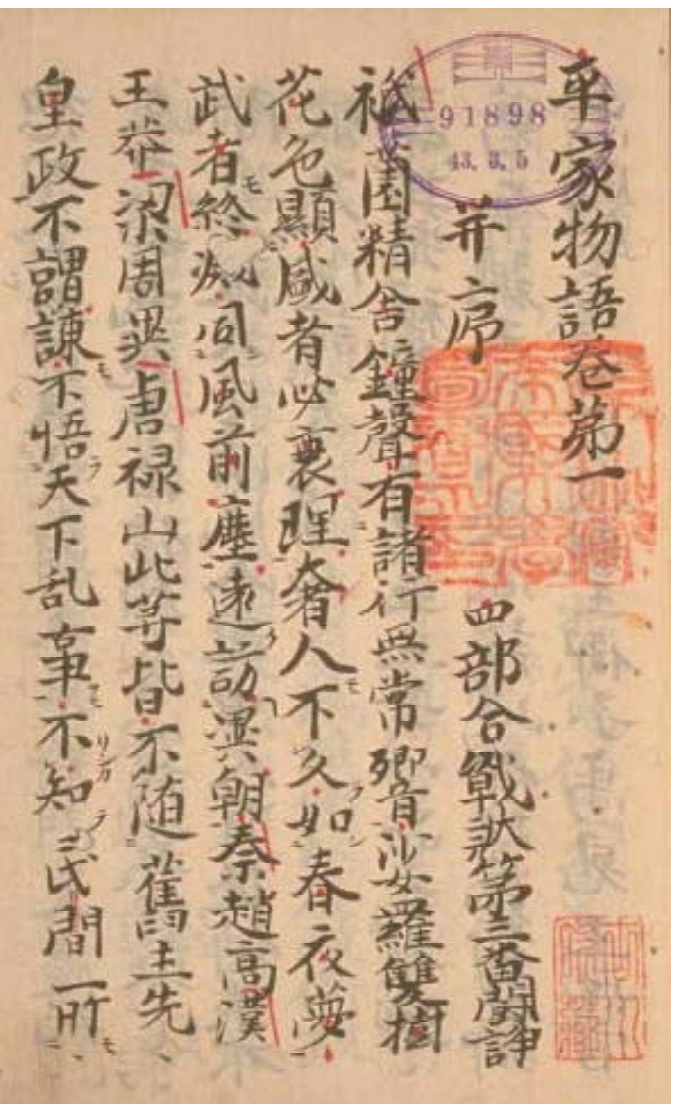 平家物語巻第一
并序 四部合戰状第三番闘諍
祇薗精舎鐘聲有諸行無常響娑羅雙樹
花色顯盛者必衰理奢人不久如春夜夢
武者終滅同風前塵遠訪異朝秦趙高漢
王莽梁周異唐禄山此等皆不随舊主先
皇政不謂諌不悟天下乱事不知民間所
91898